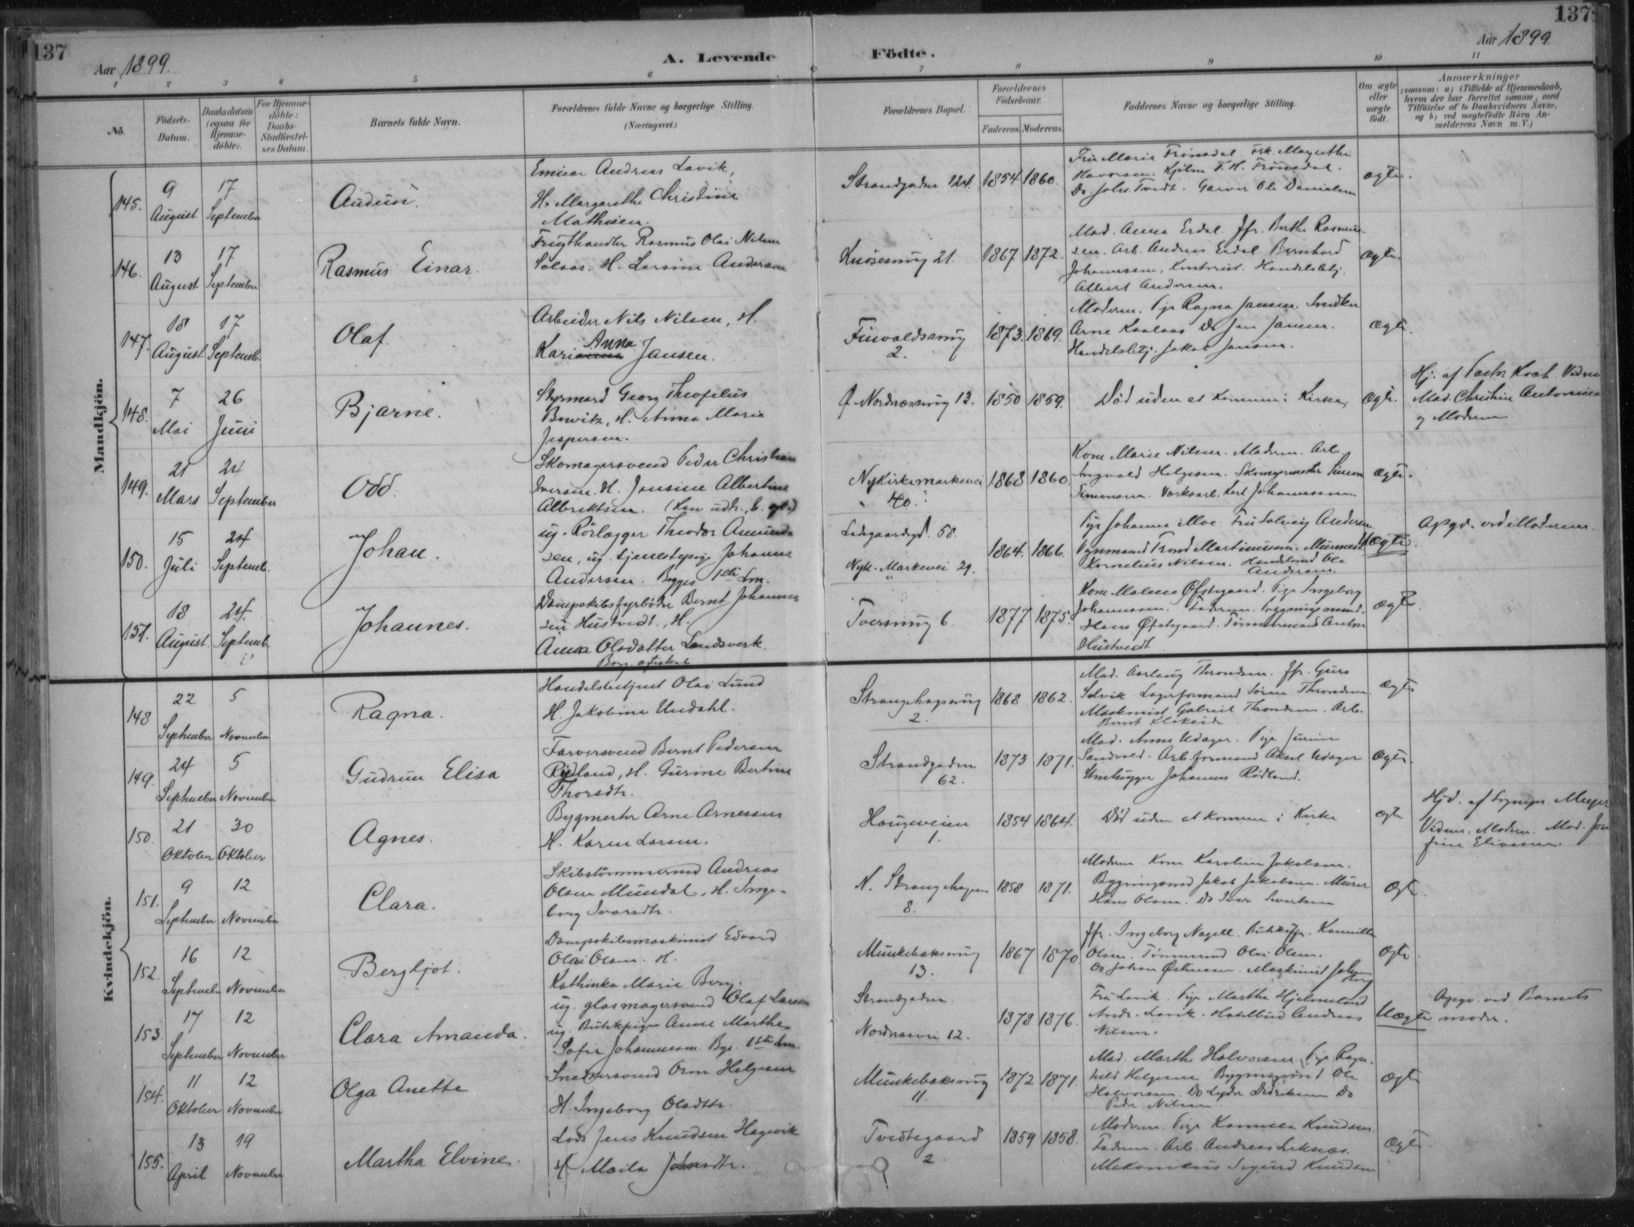 137
Aar 1899.
A. Levende Födte.
Aar 1899
137
1 2 3 4 5 6 7 8 9 10 11
No.
Födsels-Datum.
Daabsdatum (ogsaa for Hjemme-döbte).
For Hjemme-döbte: Daabs-Stadfæstel-ses Datum.
Barnets fulde Navn.
Forældrenes fulde Navne og borgerlige Stilling. (Næringsvei.)
Forældrenes Bopæl.
Forældrenes Födselsaar.
Faderens. Moderens.
Faddernes Navne og borgerlige Stilling.
Om ægte eller uægte födt.
Anmærkninger
(saasom: a) i Tilfælde af Hjemmedaab,
hvem der har forrettet samme, med
Tilföielse af to Daabsvidners Navne,
og b) ved uægtefödte Börn An-
melderens Navn m. V.)
Mandkjön.
145. 9 August 17 September
Audun.
Emissær Andreas Lavik,
H. Margarethe Christine
Mathisen.
Strandgaden 124. 1854 1860.
Fru Marie Frönsdal. Frk. Margrethe
ægte.
146. 13 August 17 September
Rasmus Einar.
Frugthandler Rasmus Olai Nilsen
H. Larsine Andersen
Knösesmug 21. 1867 1872.
Mad. Anna Erdal. Jfr. Berthe Rasmus-
sen. Arb. Andreas Erdal. Bernhard
Johannessen, Kontorist. Handelsbetj.
Albert Andersen.
ægte.
147. 18 August 17 Septemb.
Olaf.
Arbeider Nils Nilsen, H.
Anna
Kari Jansen.
2. 1873. 1869.
Moderen. Pige Ragna Jansen. Snedker
Arne Do Jan Jansen.
Handelsbetj. Jakob Jansen.
ægte.
148. 7 Mai 26 Juni
Bjarne.
Styrmand Georg Theofilus
H. Anna Maria
Jespersen.
Ø. Nordnæssmug 13. 1850 1859.
Död uden at komme i Kirke
ægte.
Hj. af Pastor Vidner
Mad. Christine Antonsen
og Moderen
149. 21 Mars 24 September
Odd.
Skomagersvend Peder Christian
Iversen. H. Jensine Albertine
Albrektsen.
Nykirkemarkevei 40. 1868 1860.
Kone Marie Nilsen. Moderen. Arb.
Ingvald Helgesen. Skomagermester Simon
Simonsen. Værksarb. Johannessen.
ægte.
150. 15 Juli 24 Septemb.
Johan.
ug. Rörlægger Theodor Amund-
sen, ug. tjenestepige Johanne
Andersen. Begges 1ste Lm.
58.
Nyk. Markevei 29. 1864. 1866.
Pige Johanne Moe. Fru Solveig Andersen.
Trond Martinussen. Murmest.
Kornelius Nilsen. Ole
Andersen.
Uægte.
Opgd. ved Moderen.
151. 18 August 24 Septemb.
Johannes.
Dampskibsfyrböder Bernt Johannes-
sen Hustvedt, H.
Anna Olsdatter Landsverk.
Tversmug 6. 1877 1875.
Kone Malena Øfstegaard. Pige Ingeborg
Johannessen. Faderen. Bygningsmand
Hans Øfstegaard. Tömmermand Anton
Hustvedt
ægte
Kvindekjön.
148 22 September 5 November
Ragna.
Handelsbetjent Olai Lund
H. Jakobine Undahl.
Strangehagsmug 2. 1868 1862.
Mad. Aaslaug Throndsen. Jfr. Guro
Solvik. Lagerformand Sören Throndsen.
Maskinist Gabriel Throndsen. Arb.
Bernt
ægte
149. 24 September 5 November
Gudrun Elisa
Farversvend Bernt Pedersen
Rödland, H. Gurine Bertine
Thorsdtr.
Strandgaden 62. 1873 1871.
Mad. Anna Udager. Pige
Sandvold. Arb.formand Aksel Udager
Stenhugger Johannes Rödland.
ægte.
150. 21 Oktober 30 Oktober
Agnes.
Bygmester Arne Arnessen
H. Karen Larsen.
Haugeveien 1. 1854 1864.
Död uden at komme i Kirke
ægte
Hjd. af Meyer
Vidner. Moderen. Mad. Jose-
fine Eliassen.
151. 9 September 12 November
Clara.
Skibstömmermand Andreas
Olsen Mundal, H. Inge-
borg Ivarsdtr.
N. Strangehagen 8. 1858 1871.
Moderen. Kone Karoline Jakobsen.
Bygningsmd Jakob Jakobsen. Murer
Hans Olsen. Do Iver Sivertsen
ægte.
152. 16 September 12 November
Bergljot.
Dampskibsmaskinist Edvard
Olai Olsen. H.
Kathinka Marie Berg.
Munkebæksmug 13. 1867 1870
Jfr. Ingeborg Nagell. Butikjfr. Kamilla
Olsen. Tömmermd Olai Olsen.
Do Johan Östensen. Maskinist Johan
Berg
ægte
153. 17 September 12 November
Clara Amanda.
ug. glasmagersvend Olaf Larsen
ug. Butikpige Anne Marthe
Sofie Johannessen. Begs. 1ste Lm.
Strandgaden.
Nordnæsvei 12. 1878 1876.
Fru Lavik. Pige Martha Hjelmeland
Andr. Lavik. Andreas
Nilsen.
Uægte
Opgv. ved Barnets
moder.
154. 11 Oktober 12 November
Olga Anette
Snedkersvend Orm Helgesen
H. Ingeborg Olsdtr.
Munkebæksmug 11. 1872 1871.
Mad. Marthe Halvorsen. Pige Ragn-
hild Helgesen. Bygningsmd Ole
Halvorsen. Do Lyder Didriksen Do
Peder Nilsen
ægte
155. 13 April 19 November
Martha Elvine.
Lods Jens Knudsen Hegevik
H. Maila Johansdtr.
Tvedtegaard 2. 1859 1858.
Moderen. Pige Knudsen.
Faderen. Arb. Andreas
Sigurd Knudsen
ægte